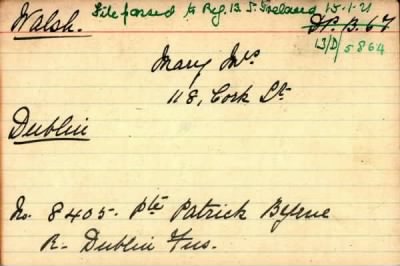 Walsh. File passed to Reg. 13. S. Ireland 15.1.21
DP. B. 67
13/D/5864
Mary Mrs
118, Cork St.
Dublin
No. 8405. Pte Patrick Byrne
R. Dublin Fus.